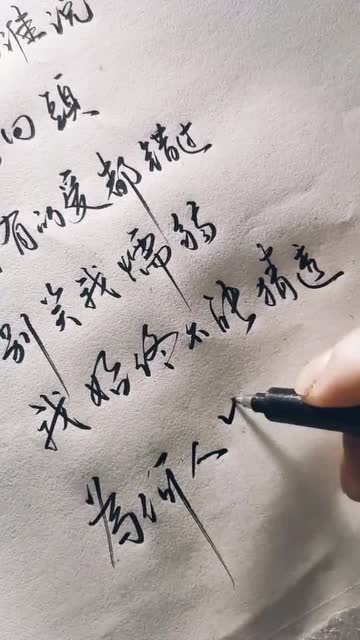 谁说
回头
有的爱都错过
别笑我懦弱
我始终不能猜透
为何人